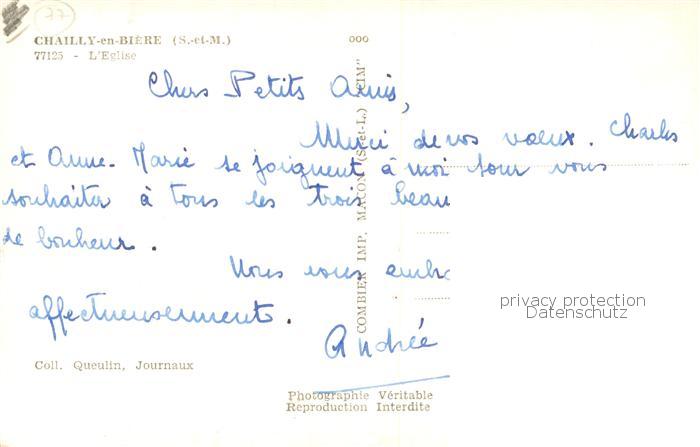 77
CHAILLY-en-BIÈRE (S.-et-M.)
77125 - L'Eglise
000
Chers Petits Amis,
Merci de vos voeux. Charles
et Anne-Marie se joignent à moi pour vous
souhaiter à tous les trois beau
de bonheur.
Nous vous embra
affectueusement.
Andrée
COMBIER IMP. MACON (S.-et-L.) "CIM"
privacy protection
Datenschutz
Coll. Queulin, Journaux
Photographie Véritable
Reproduction Interdite